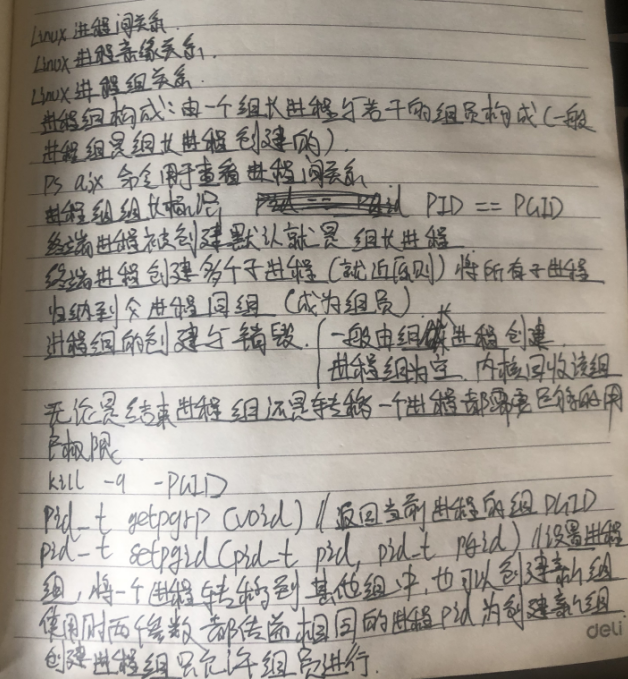 Linux 进程间关系
Linux 进程亲缘关系.
Linux 进程组关系.
进程组构成:由一个组长进程与若干的组员构成(一般
进程组是组长进程创建的).
Ps ajx 命令用于查看进程间关系
进程组组长 PID == PGID
终端进程被创建默认就是 组长进程
终端进程创建多个子进程(就近原则)将所有子进程
归纳到父进程同组 (成为组员)
进程组的创建与销毁. 一般由组长进程创建.
进程组为空. 内核回收该组
无论是结束进程组还是转移一个进程都需要足够的用
户权限.
kill -9 -PGID
pid_t getpgrp (void) // 返回当前进程的组 PGID
pid_t setpgid(pid_t pid, pid_t pgid) // 设置进程
组, 将一个进程转移到其他组中, 也可以创建新组
使用时两个参数都传递相同的进程 pid 为创建新组.
创建进程组只允许组员进行.
deli